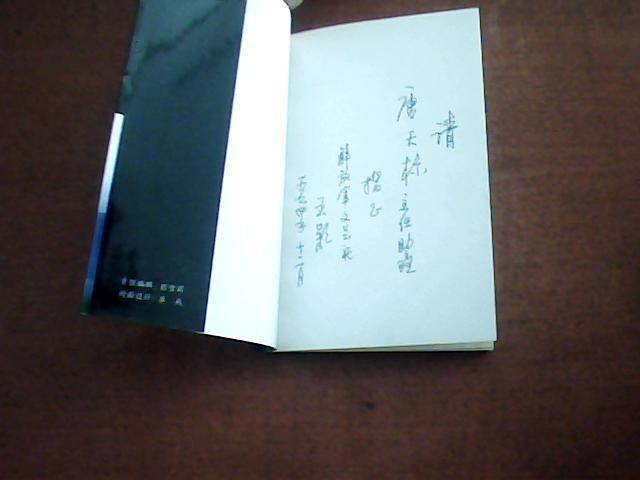 请
唐天标主任助理
指正
解放军文艺社
王颖
一九九四年十二月
责任编辑
封面设计